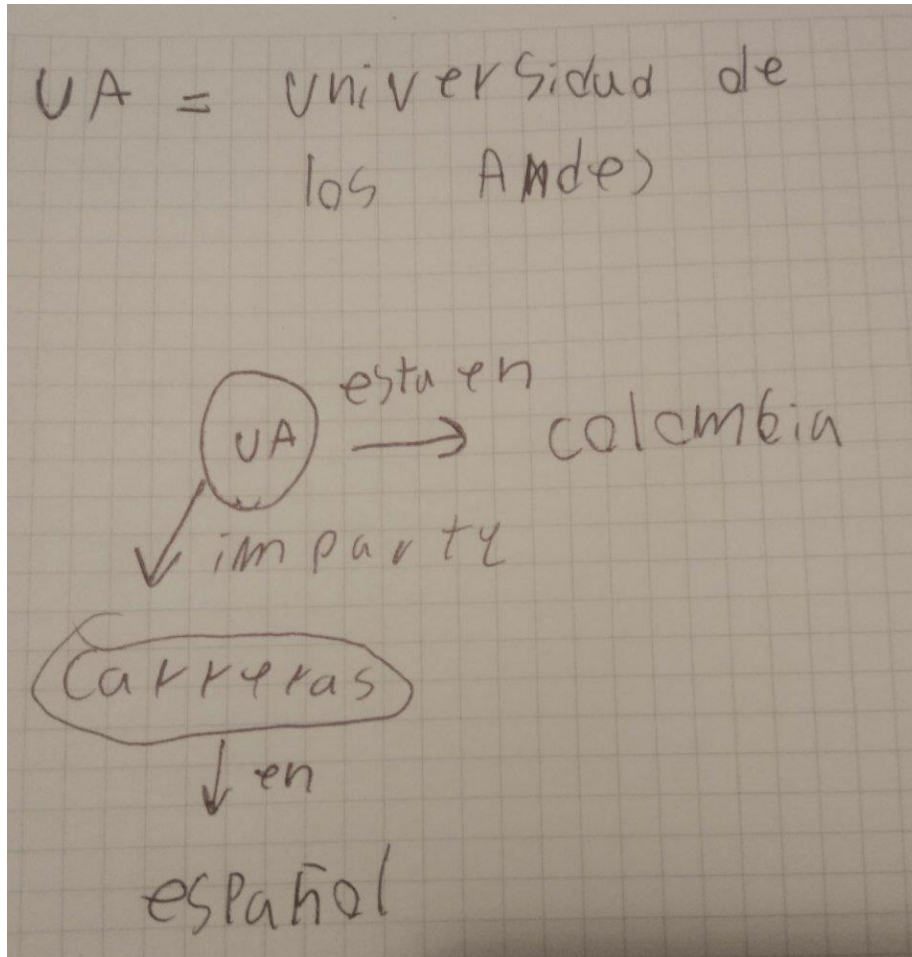 UA = Universidad de
los Andes
UA esta en → colombia
imparte
Carreras
en
español